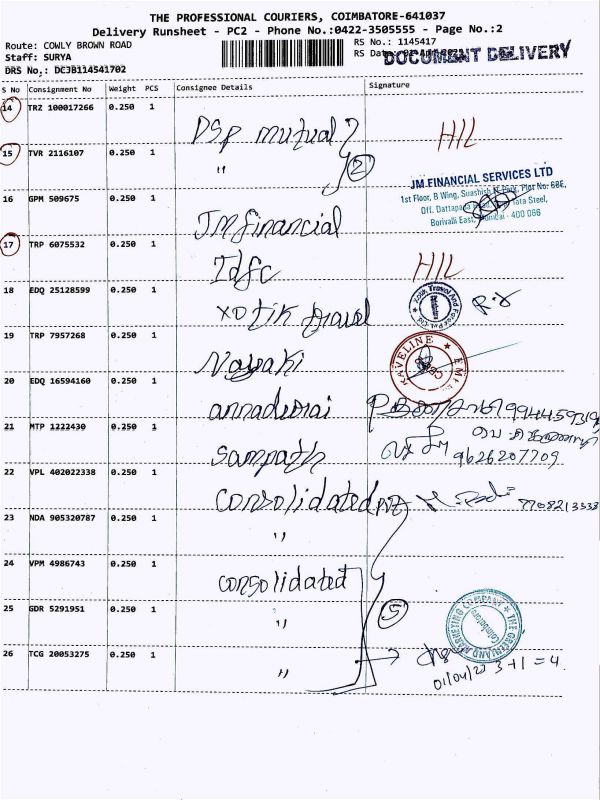 THE PROFESSIONAL COURIERS, COIMBATORE-641037
Delivery Runsheet - PC2 - Phone No.:0422-3505555 - Page No.:2
Route: COWLY BROWN ROAD
Staff: SURYA
DRS No,: DC3B114541702
RS No.: 1145417
RS Date:
DOCUMENT DELIVERY
S No Consignment No Weight PCS Consignee Details Signature
14 TRZ 100017266 0.250 1 DSP mutual HIL
15 TVR 2116107 0.250 1 " 2
JM FINANCIAL SERVICES LTD
1st Floor, B Wing, Suashish IT Park, Plot No. 68E,
Off. Dattapada Road, Tata Steel,
Borivali East, Mumbai - 400 066
16 GPM 509675 0.250 1 JM financial
17 TRP 6075532 0.250 1 Idfc HIL
18 EDQ 25128599 0.250 1 xotik travel
19 TRP 7957268 0.250 1 Nayaki
KAVELINE
20 EDQ 16594160 0.250 1 annadurai
21 MTP 1222430 0.250 1 sampath 9626207709
22 VPL 402022338 0.250 1 Consolidated 7708213538
23 NDA 905320787 0.250 1 "
24 VPM 4986743 0.250 1 consolidated
25 GDR 5291951 0.250 1 " 5
THE GREENLAND MARKETING COMPANY
Coimbatore
26 TCG 20053275 0.250 1 "
01/04/23 3+1=4.